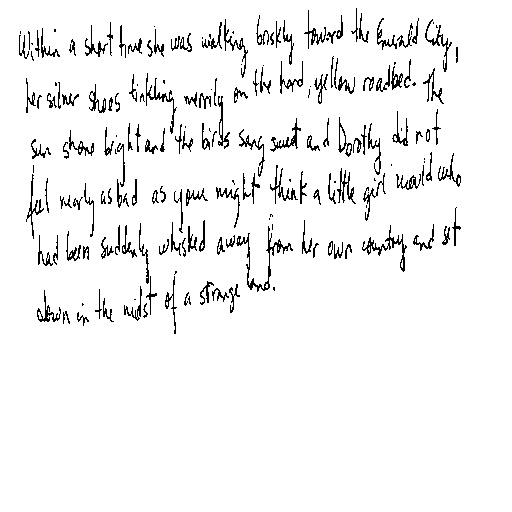 Within a short time she was walking briskly toward the Emerald City,
her silver shoes tinkling merrily on the hard, yellow roadbed. The
sun shone bright and the birds sang sweet and Dorothy did not
feel nearly as bad as you might think a little girl would who
had been suddenly whisked away from her own country and set
down in the midst of a strange land.